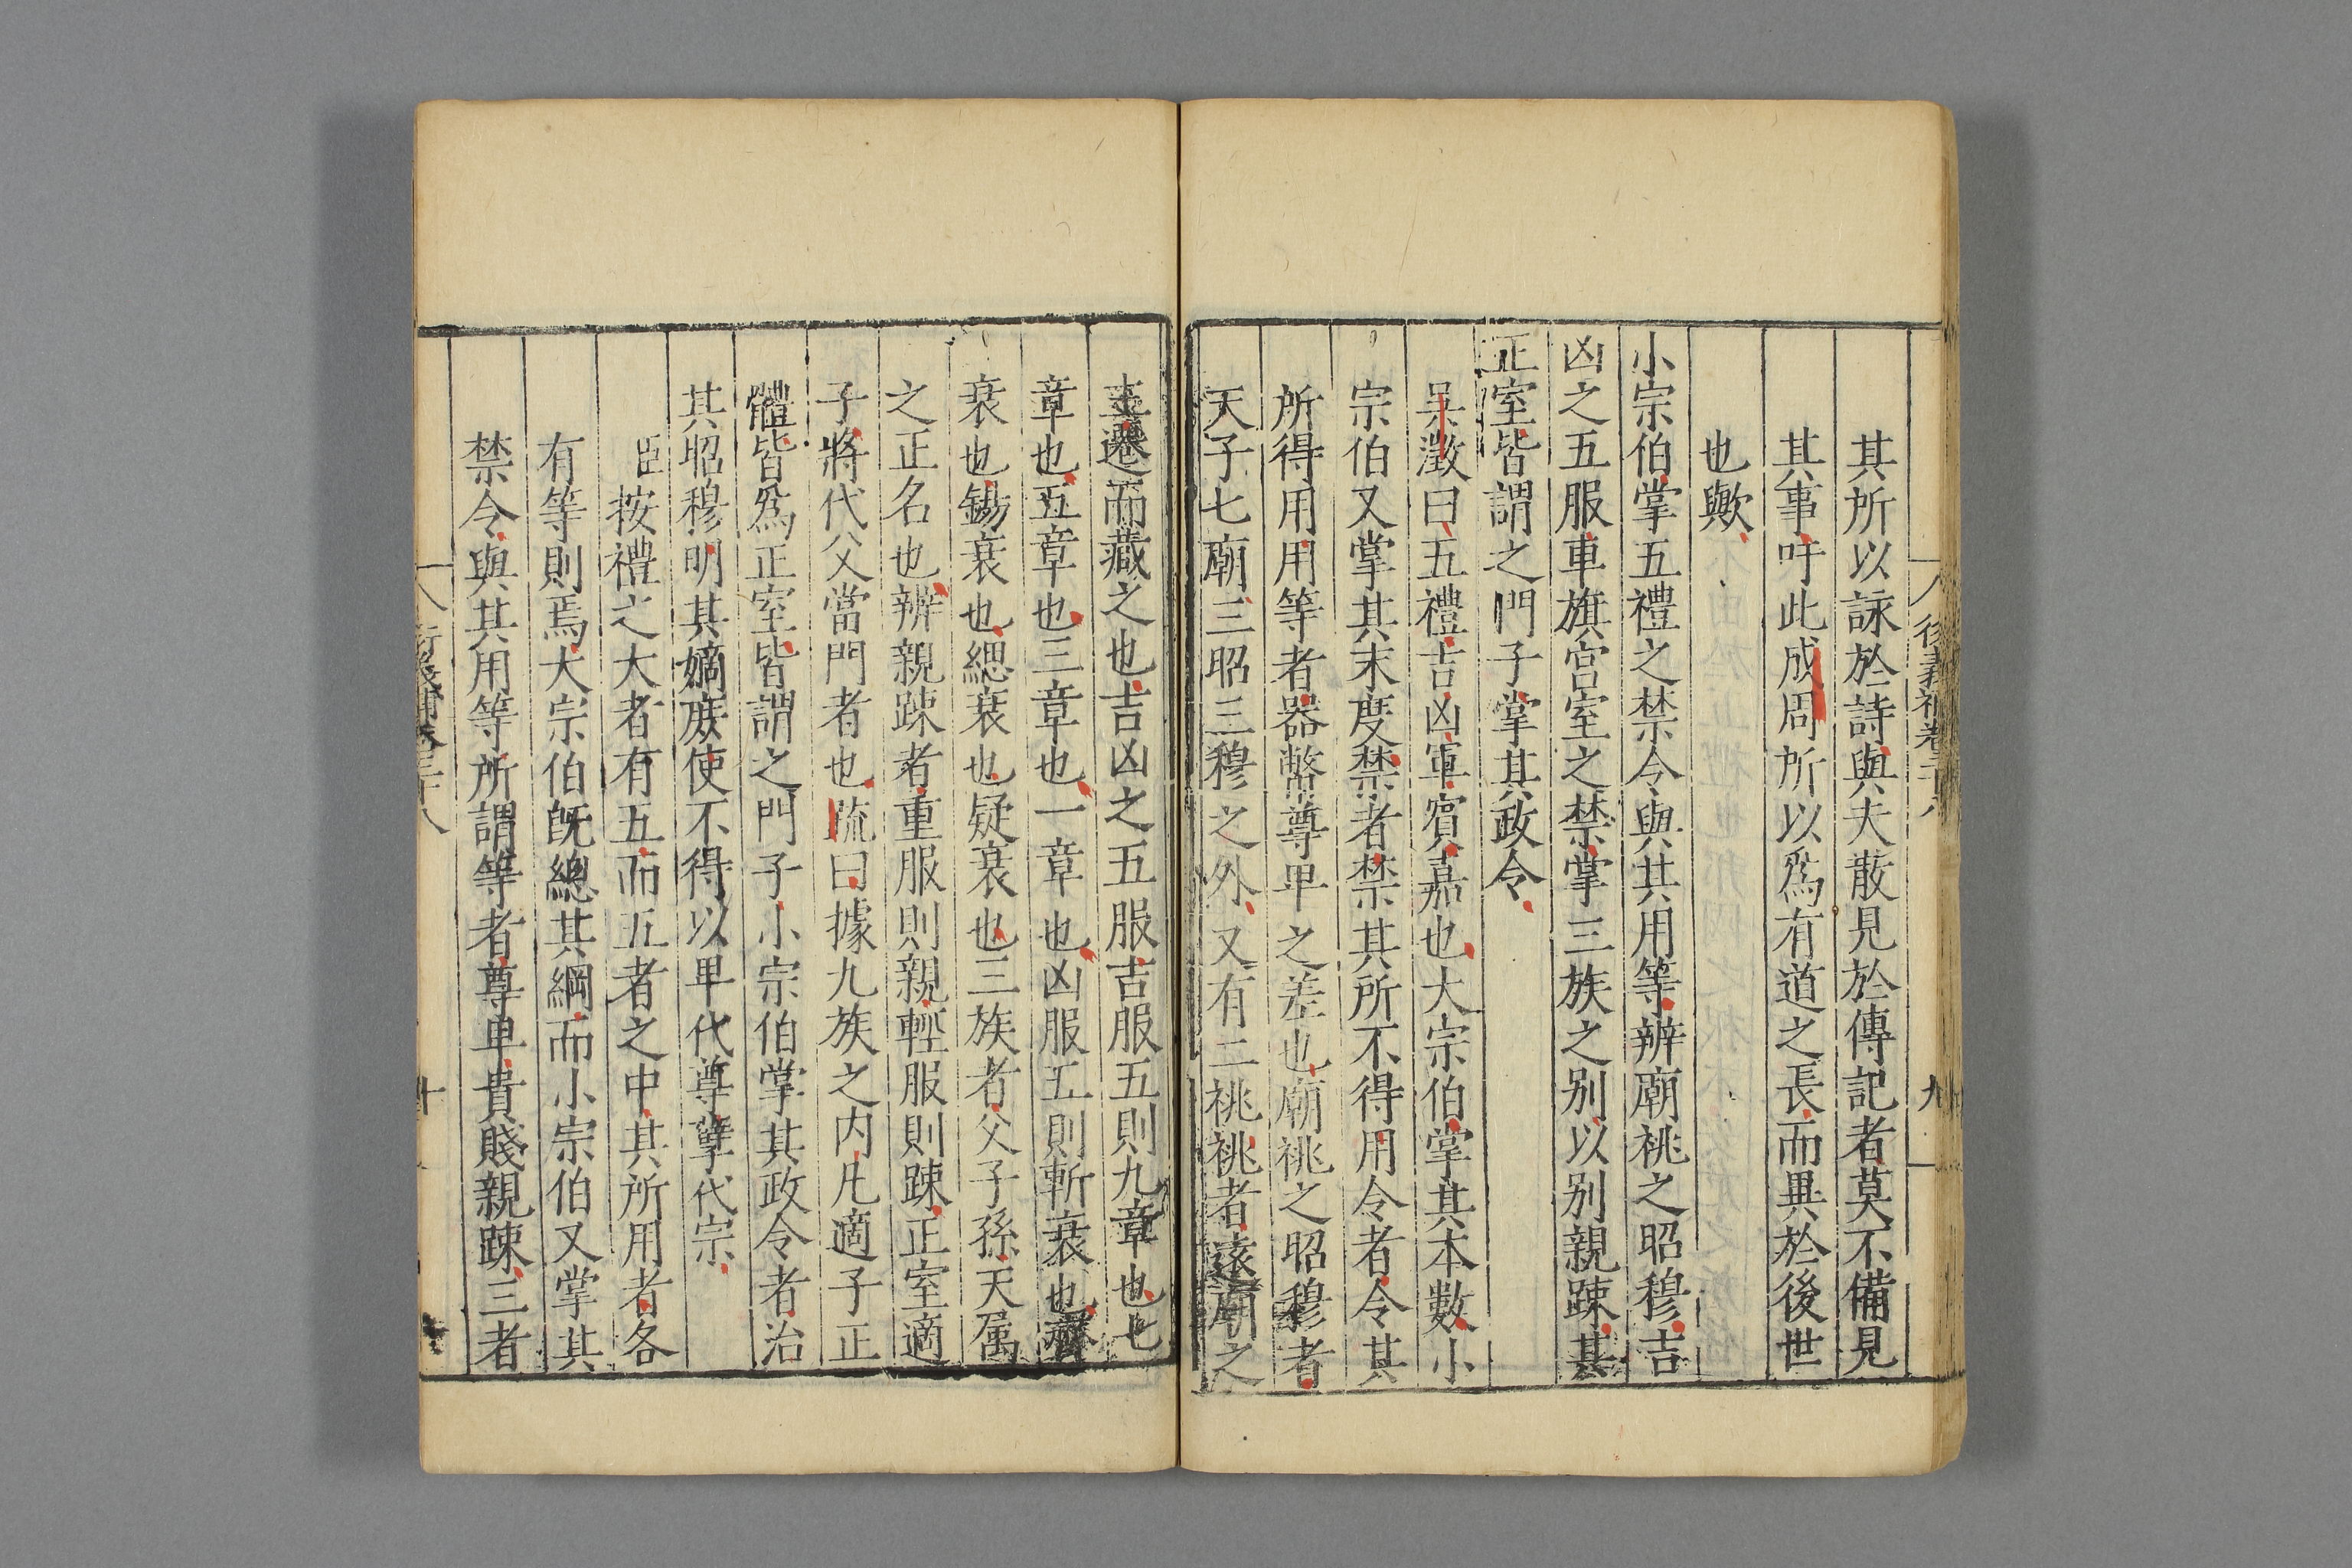 衍義補卷三十八
九
其所以詠於詩與夫散見於傳記者莫不備見
其事吁此成周所以爲有道之長而異於後世
也歟
小宗伯掌五禮之禁令與其用等辨廟祧之昭穆吉
凶之五服車旗宫室之禁掌三族之别以别親踈其
正室皆謂之門子掌其政令
吴澂曰五禮吉凶軍賓嘉也大宗伯掌其本數小
宗伯又掌其末度禁者禁其所不得用令者令其
所得用用等者器幣尊卑之差也廟祧之昭穆者
天子七廟三昭三穆之外又有二祧祧者遠廟之
主遷而藏之也吉凶之五服吉服五則九章也七
章也五章也三章也一章也凶服五則斬衰也齊
衰也錫衰也緦衰也疑衰也三族者父子孫天属
之正名也辨親踈者重服則親輕服則踈正室適
子將代父當門者也疏曰據九族之内凡適子正
體皆爲正室皆謂之門子小宗伯掌其政令者治
其昭穆明其嫡庶使不得以卑代尊孽代宗
臣按禮之大者有五而五者之中其所用者各
有等則焉大宗伯旣總其綱而小宗伯又掌其
禁令與其用等所謂等者尊卑貴賤親踈三者
衍義補卷三十八
十